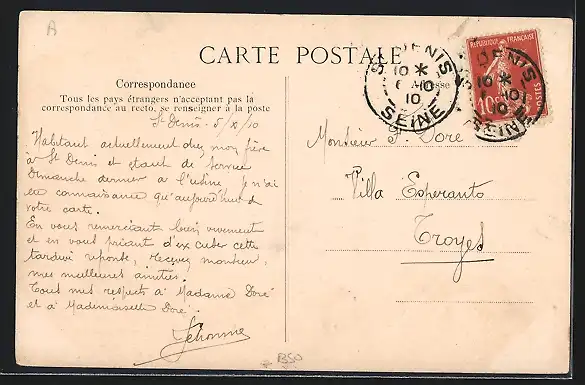 A
CARTE POSTALE
Correspondance
Tous les pays étrangers n'acceptant pas la
correspondance au recto, se renseigner à la poste
Adresse
St DENIS
10 *
6 10
10
SEINE
St DENIS
10 *
10
10
SEINE
REPUBLIQUE FRANÇAISE
10
POSTES
St Denis 5/X/10
Habitant actuellement chez mon frère
à St Denis et étant de service
Dimanche dernier à l'usine je n'ai
eu connaissance qu'aujourd'hui de
votre carte.
En vous remerciant bien vivement
et en vous priant d'excuser cette
tardive réponse, recevez monsieur,
mes meilleures amitiés.
Tous mes respects à Madame Doré
et à Mademoiselle Doré.
Monsieur Doré
Villa Esperanto
Troyes
BSO